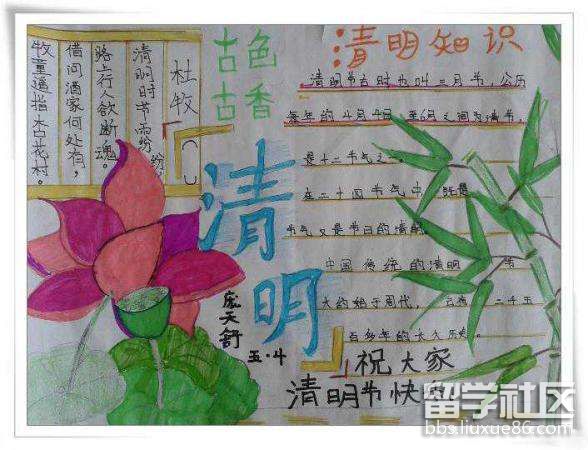 杜牧
清明时节雨纷纷
路上行人欲断魂。
借问酒家何处有,
牧童遥指杏花村。
古色
古香
清明
庞天舒
五·4
清明知识
清明节古时也叫三月节,公历
每年的4月4日至6日之间为清明节,
节气之一。
在二十四节气中,既是
节气又是节日的清明
中国传统的清明
大约始于周代,二千五
百多年的长久历史。
祝大家
清明节快
留学社区
bbs.liuxue86.com